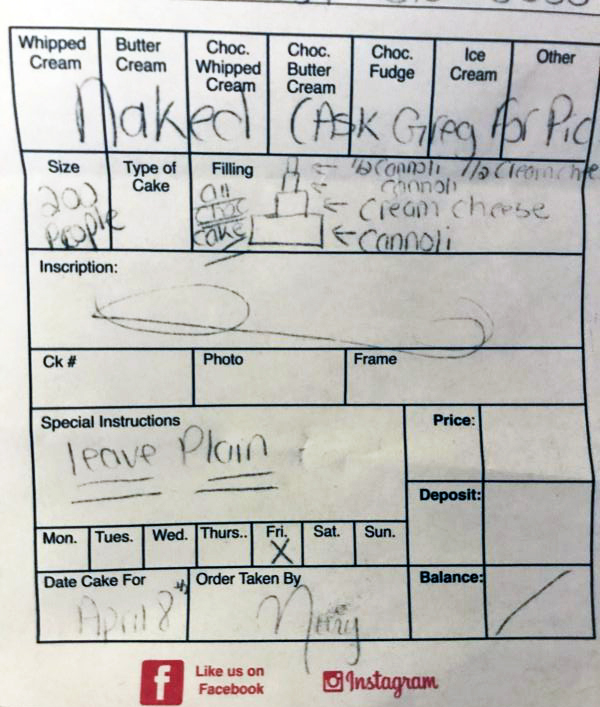 Whipped Cream
Butter Cream
Choc. Whipped Cream
Choc. Butter Cream
Choc. Fudge
Ice Cream
Other
Naked (Ask Greg for Pic
Size
200 People
Type of Cake
Filling
all choc cake
1/2 Cannoli 1/2 Cream che
cannoli
cream cheese
cannoli
Inscription:
Ck #
Photo
Frame
Special Instructions
leave Plain
Price:
Deposit:
Mon.
Tues.
Wed.
Thurs..
Fri.
X
Sat.
Sun.
Date Cake For
April 8
Order Taken By
Balance:
f
Like us on
Facebook
Instagram